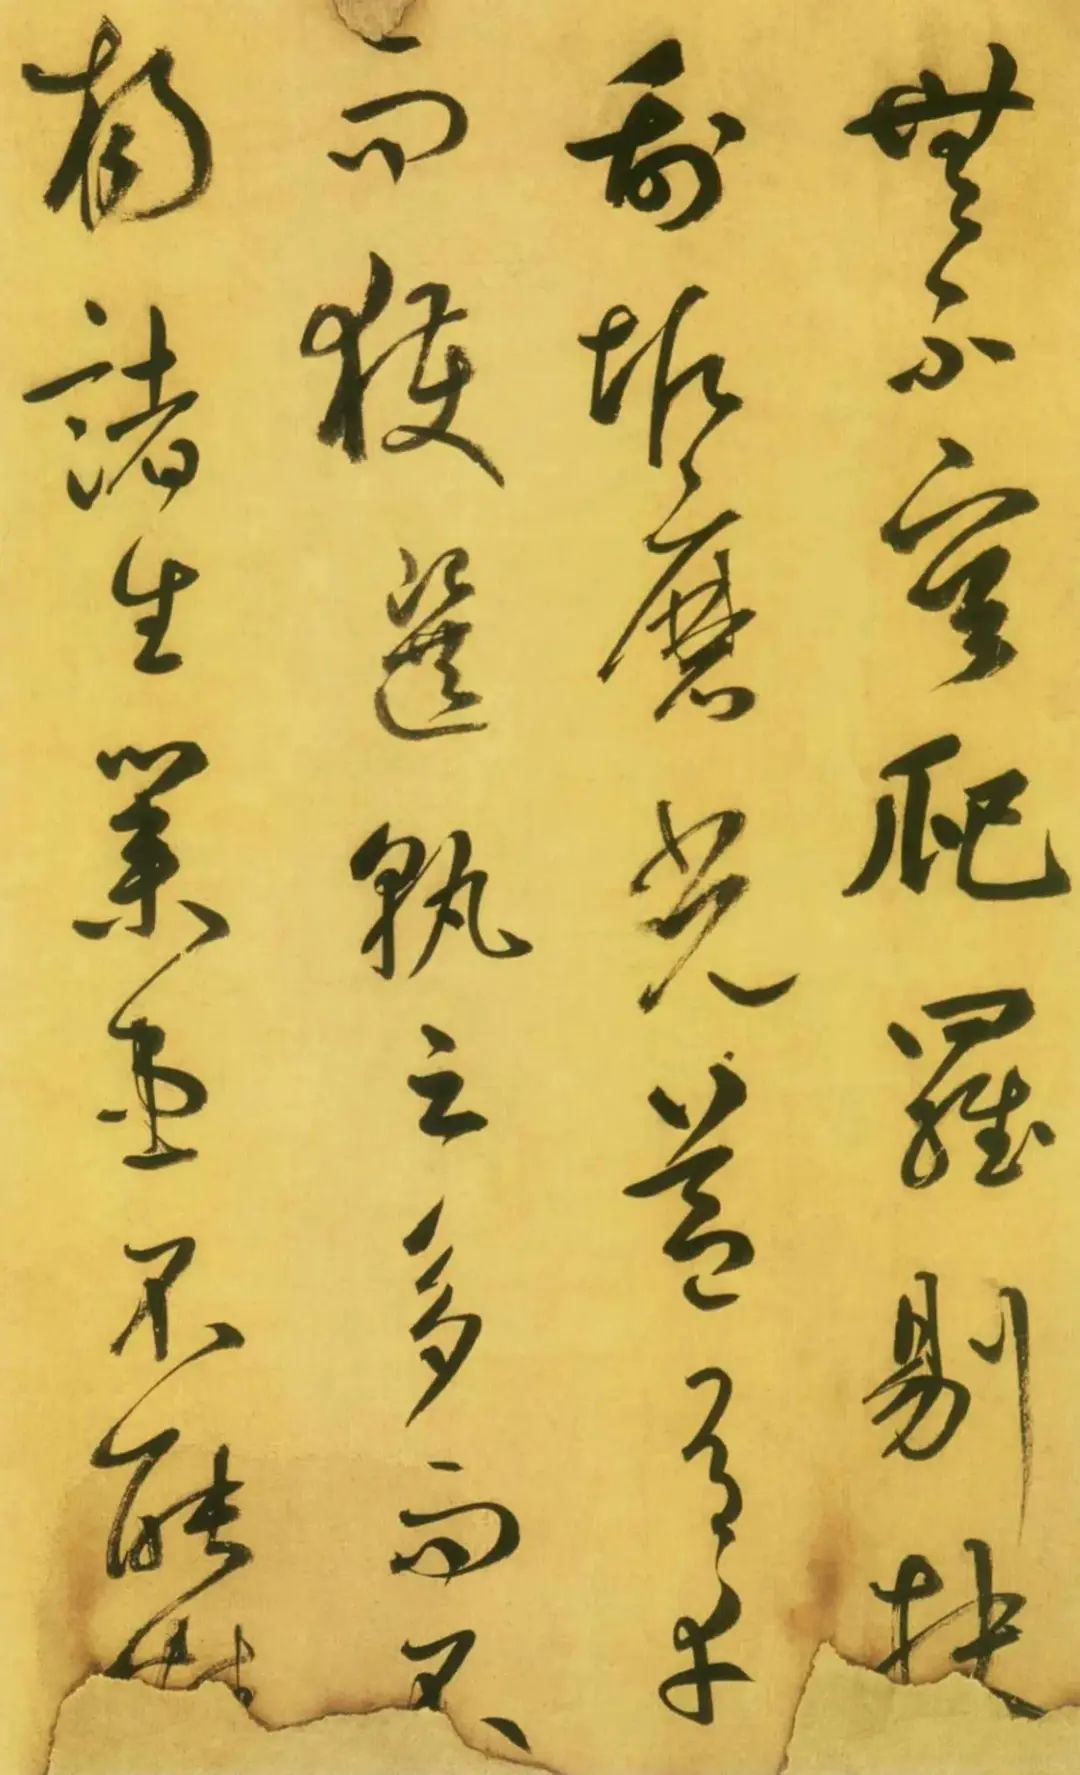 無不庸爬羅剔抉
刮垢磨光蓋有幸
而獲選孰云多而不
揚諸生業患不能